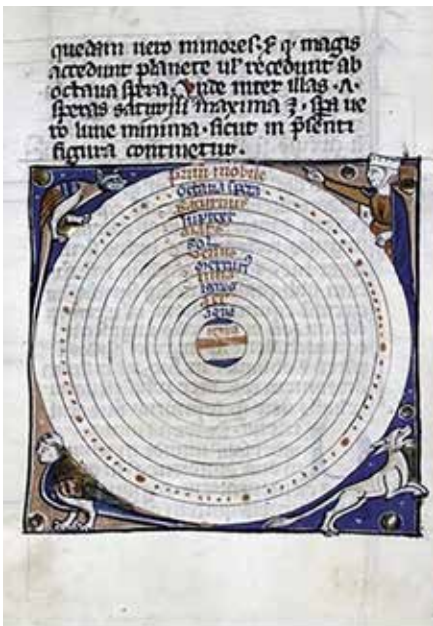 quedam uero minores: & q magis
accedunt planete ul recedunt ab
octaua spera. Vnde inter illas .A.
speras saturni maxima ÷ spa ue
ro lune minima. sicut in psenti
figura continetur.
mobile
octaua spera
saturnus
iupiter
mars
sol
uenus
mercuri9
luna
ignis
aer
aqua
terra